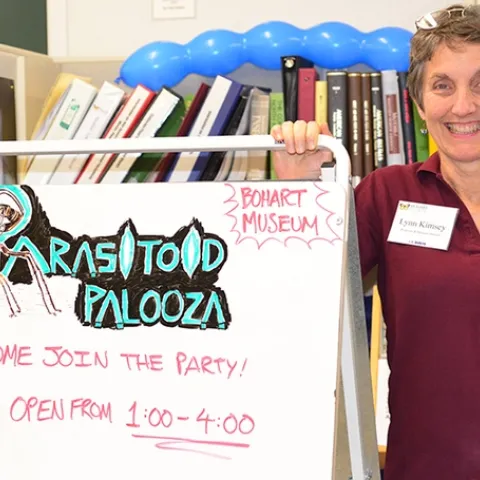 BOHART
MUSEUM
PARASITOID
PALOOZA
OME JOIN THE PARTY!
OPEN FROM 1:00-4:00
Lynn Kimsey